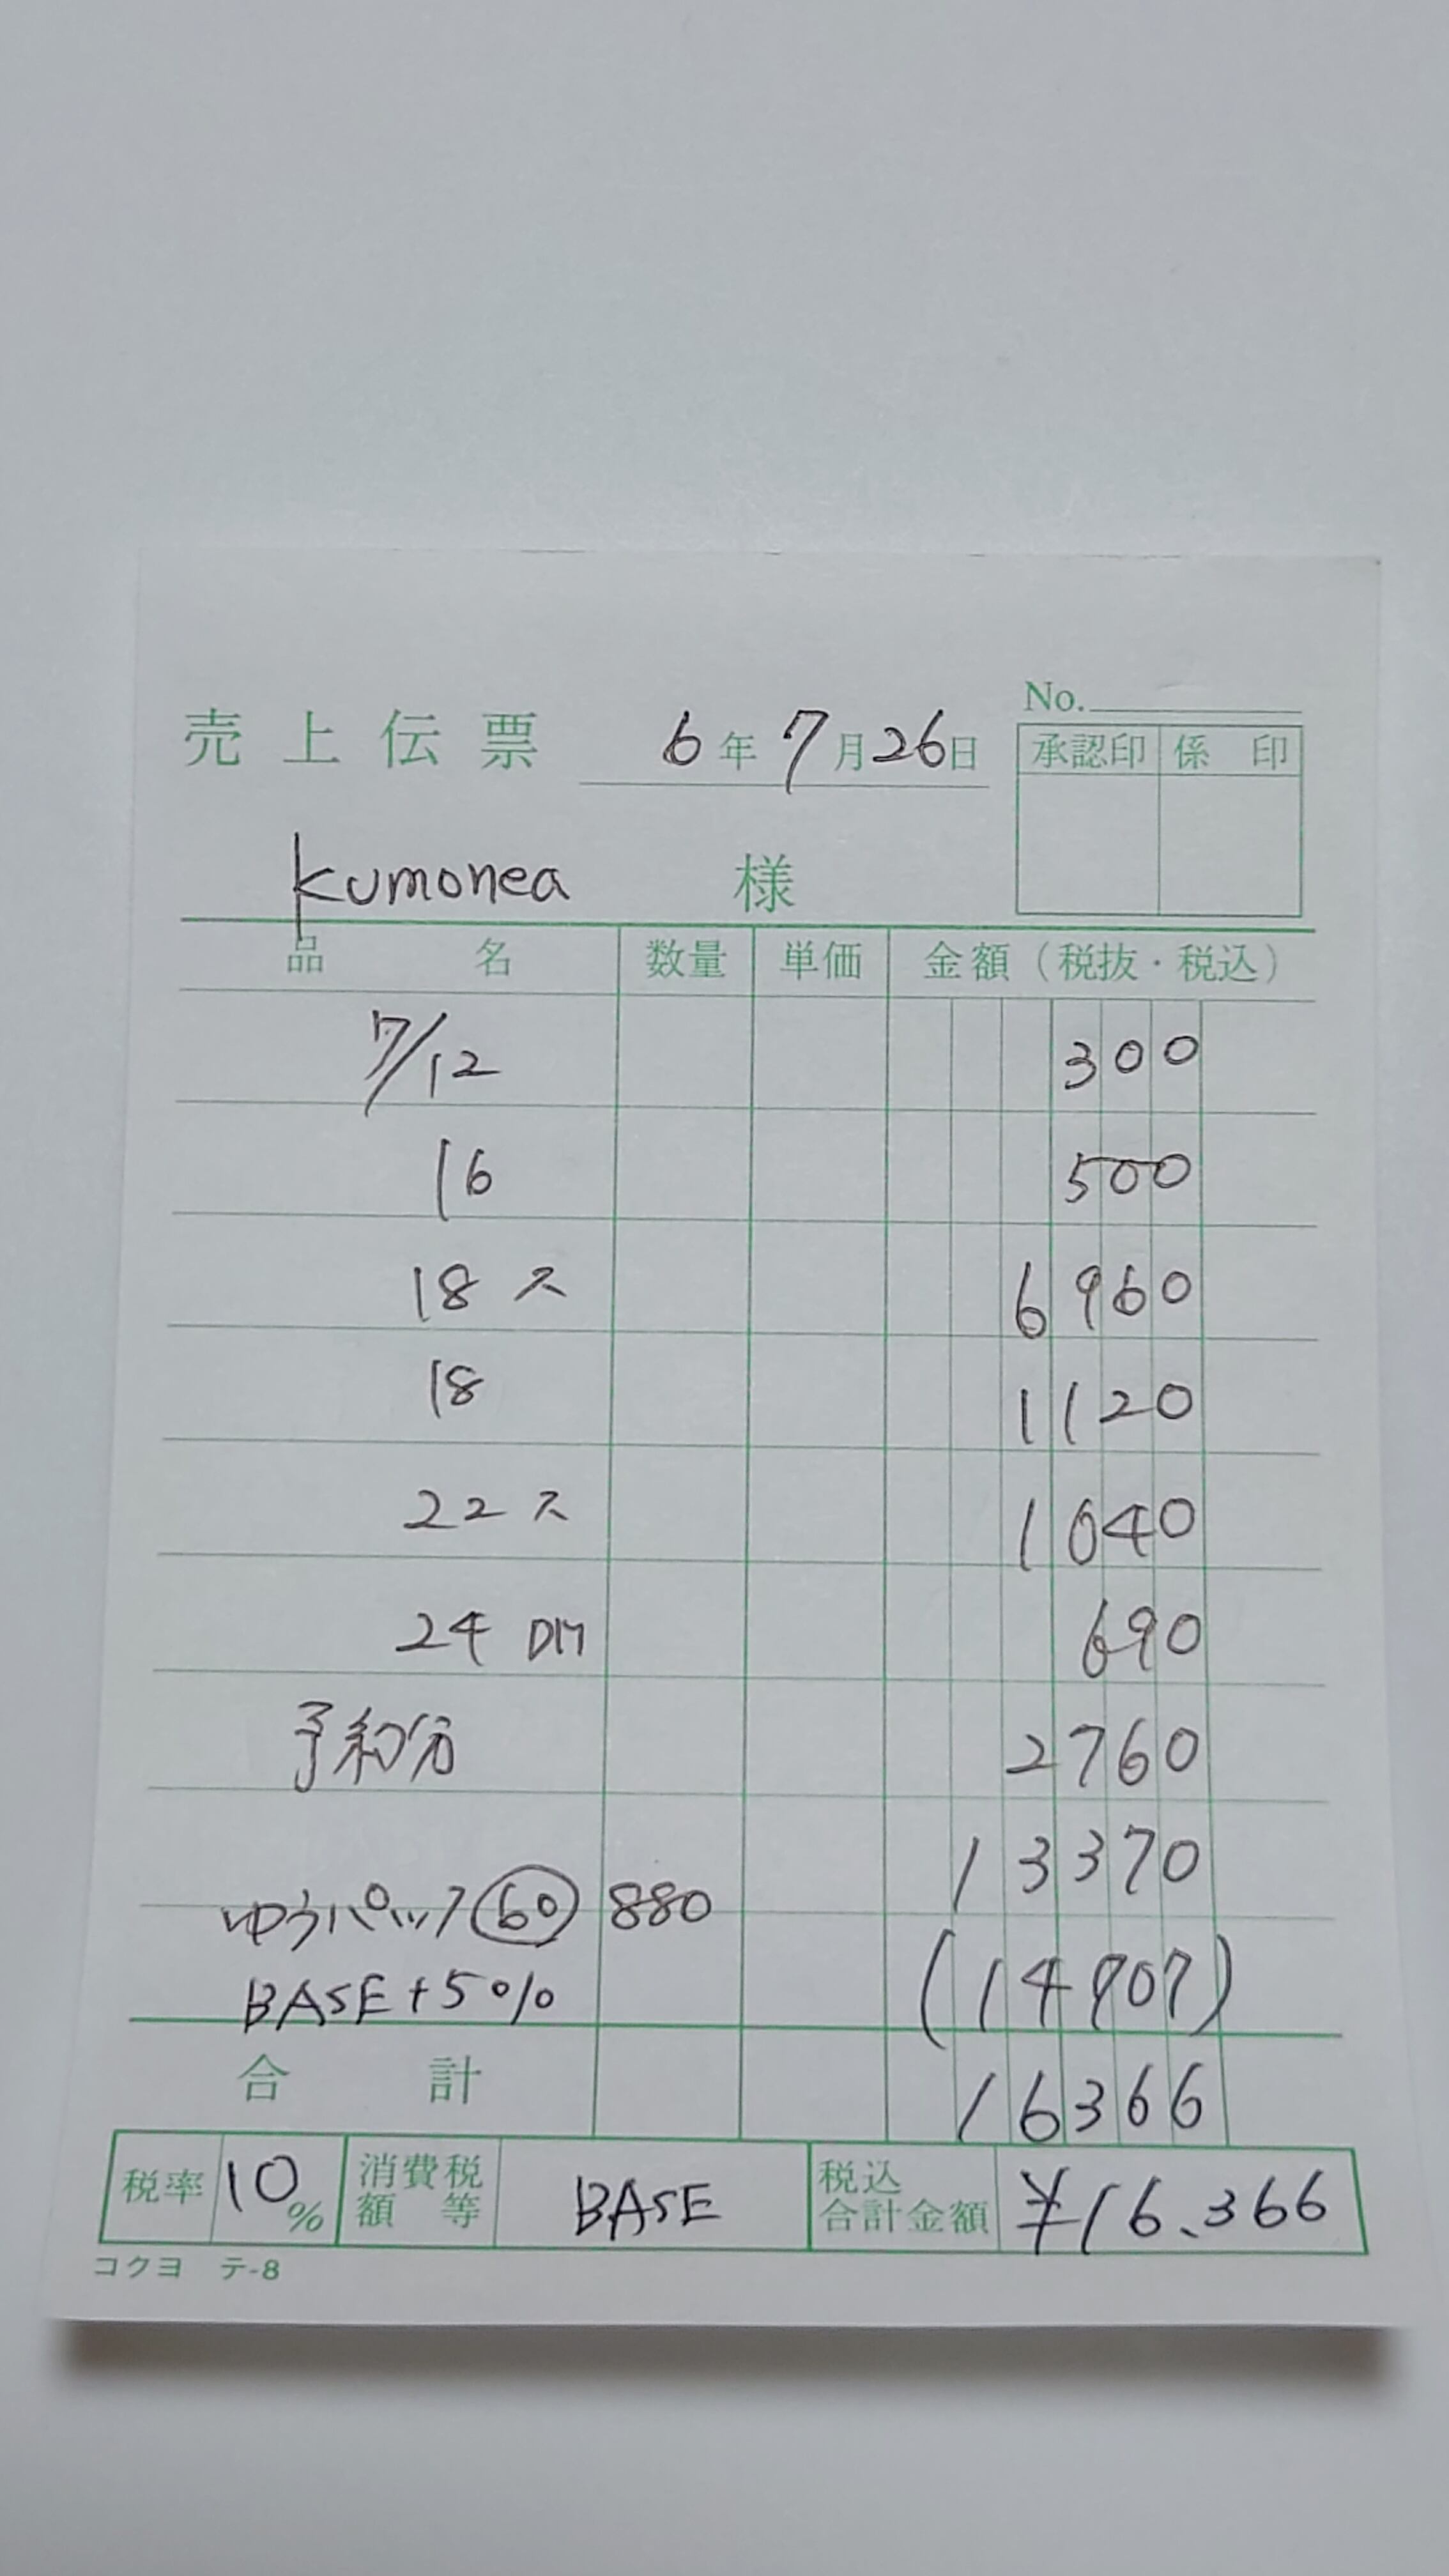 No.
売上伝票 6年7月26日
承認印 係印
kumonea 様
品名 数量 単価 金額(税抜・税込)
7/12 300
16 500
18ス 6960
18 1120
22ス 1040
24 DM 690
予約分 2760
13370
ゆうパック 60 880
BASE+5% (14907)
合計 16366
税率 10% 消費税額等 BASE 税込合計金額 ¥16.366
コクヨ テ-8